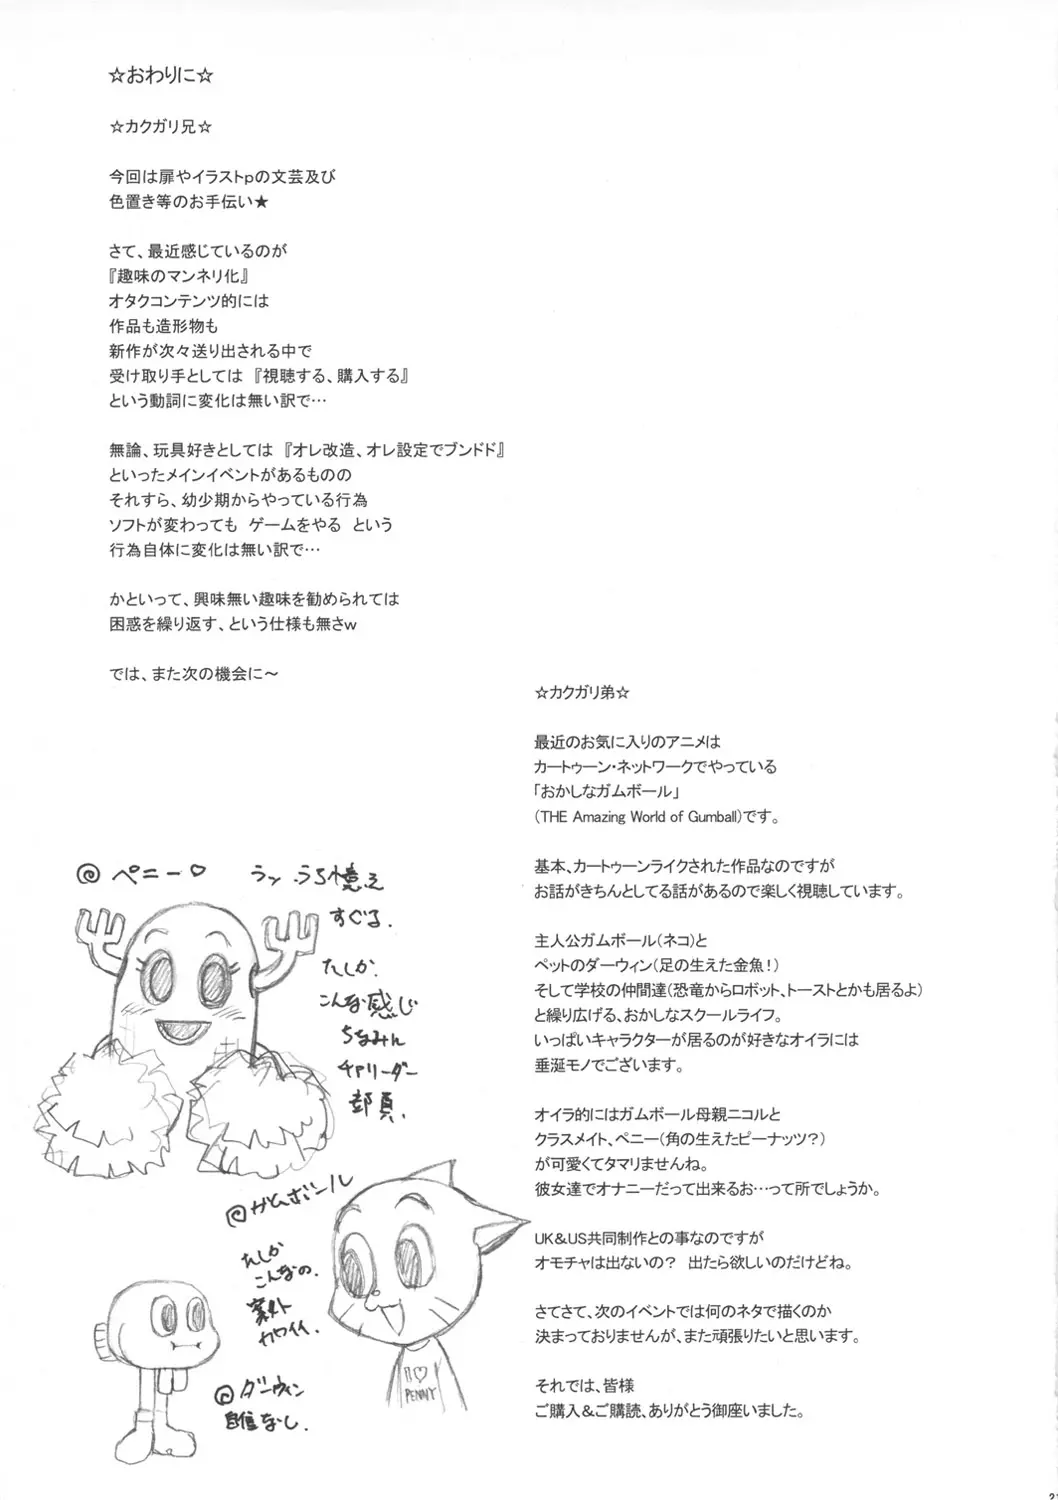 ☆おわりに☆
☆カクガリ兄☆
今回は扉やイラストpの文芸及び
色置き等のお手伝い★
さて、最近感じているのが
『趣味のマンネリ化』
オタクコンテンツ的には
作品も造形物も
新作が次々送り出される中で
受け取り手としては『視聴する、購入する』
という動詞に変化は無い訳で…
無論、玩具好きとしては『オレ改造、オレ設定でブンドド』
といったメインイベントがあるものの
それすら、幼少期からやっている行為
ソフトが変わっても　ゲームをやる　という
行為自体に変化は無い訳で…
かといって、興味無い趣味を勧められては
困惑を繰り返す、という仕様も無さw
では、また次の機会に～
☆カクガリ弟☆
最近のお気に入りのアニメは
カートゥーン・ネットワークでやっている
「おかしなガムボール」
(THE Amazing World of Gumball)です。
基本、カートゥーンライクされた作品なのですが
お話がきちんとしてる話があるので楽しく視聴しています。
主人公ガムボール(ネコ)と
ペットのダーウィン(足の生えた金魚！)
そして学校の仲間達(恐竜からロボット、トーストとかも居るよ)
と繰り広げる、おかしなスクールライフ。
いっぱいキャラクターが居るのが好きなオイラには
垂涎モノでございます。
オイラ的にはガムボール母親ニコルと
クラスメイト、ペニー(角の生えたピーナッツ？)
が可愛くてタマリませんね。
彼女達でオナニーだって出来るお…って所でしょうか。
UK&US共同制作との事なのですが
オモチャは出ないの？　出たら欲しいのだけどね。
さてさて、次のイベントでは何のネタで描くのか
決まっておりませんが、また頑張りたいと思います。
それでは、皆様
ご購入＆ご購読、ありがとう御座いました。
@ペニー♡
うろ憶え
すぎる.
たしか.
こんな感じ
ちなみに
チアリーダー
部員.
@ガムボール
たしか
こんなの.
案外
カワイイ.
I♡
PENNY
@ダーウィン
自信なし.